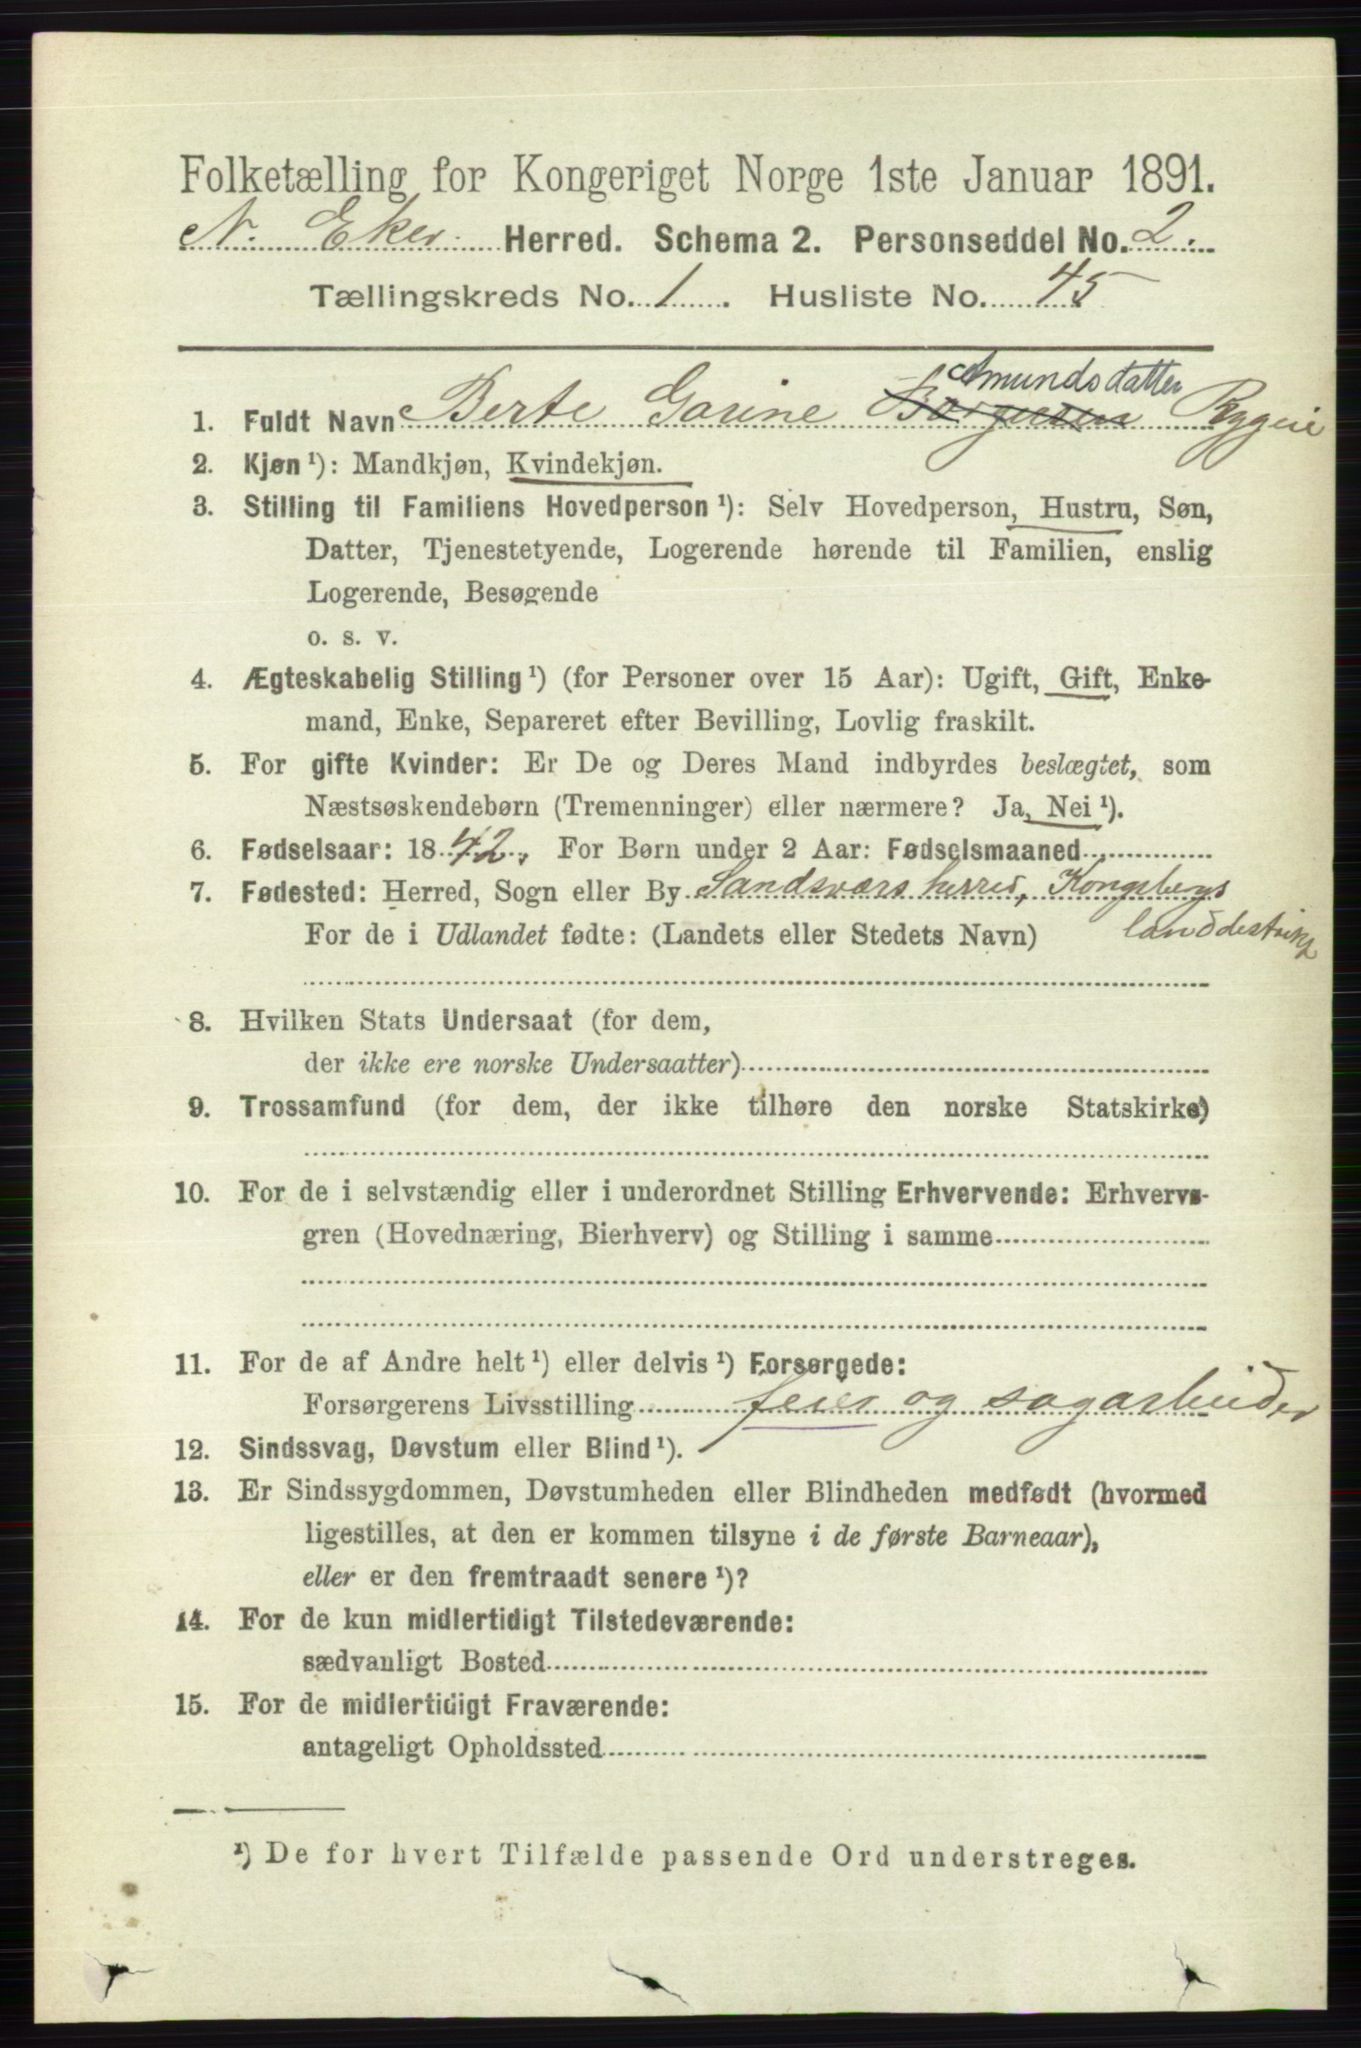 Folketælling for Kongeriget Norge 1ste Januar 1891.
N. Eker Herred. Schema 2. Personseddel No. 2.
Tællingskreds No. 1. Husliste No. 45
Amundsdatter
1. Fuldt Navn Berte Gorine Rygeie
2. Kjøn ¹): Mandkjøn, Kvindekjøn.
3. Stilling til Familiens Hovedperson ¹): Selv Hovedperson, Hustru, Søn,
Datter, Tjenestetyende, Logerende hørende til Familien, enslig
Logerende, Besøgende
o. s. v.
4. Ægteskabelig Stilling ¹) (for Personer over 15 Aar): Ugift, Gift, Enke-
mand, Enke, Separeret efter Bevilling, Lovlig fraskilt.
5. For gifte Kvinder: Er De og Deres Mand indbyrdes beslægtet, som
Næstsøskendebørn (Tremenninger) eller nærmere? Ja, Nei ¹).
6. Fødselsaar: 1842. For Børn under 2 Aar: Fødselsmaaned
7. Fødested: Herred, Sogn eller By Sandsværs herred, Kongsbergs
landdestrikt
For de i Udlandet fødte: (Landets eller Stedets Navn)
8. Hvilken Stats Undersaat (for dem,
der ikke ere norske Undersaatter)
9. Trossamfund (for dem, der ikke tilhøre den norske Statskirke)
10. For de i selvstændig eller i underordnet Stilling Erhvervende: Erhvervs-
gren (Hovednæring, Bierhverv) og Stilling i samme
11. For de af Andre helt ¹) eller delvis ¹) Forsørgede:
Forsørgerens Livsstilling feier og sagarbeider
12. Sindssvag, Døvstum eller Blind ¹).
13. Er Sindssygdommen, Døvstumheden eller Blindheden medfødt (hvormed
ligestilles, at den er kommen tilsyne i de første Barneaar),
eller er den fremtraadt senere ¹)?
14. For de kun midlertidigt Tilstedeværende:
sædvanligt Bosted
15. For de midlertidigt Fraværende:
antageligt Opholdssted
¹) De for hvert Tilfælde passende Ord understreges.